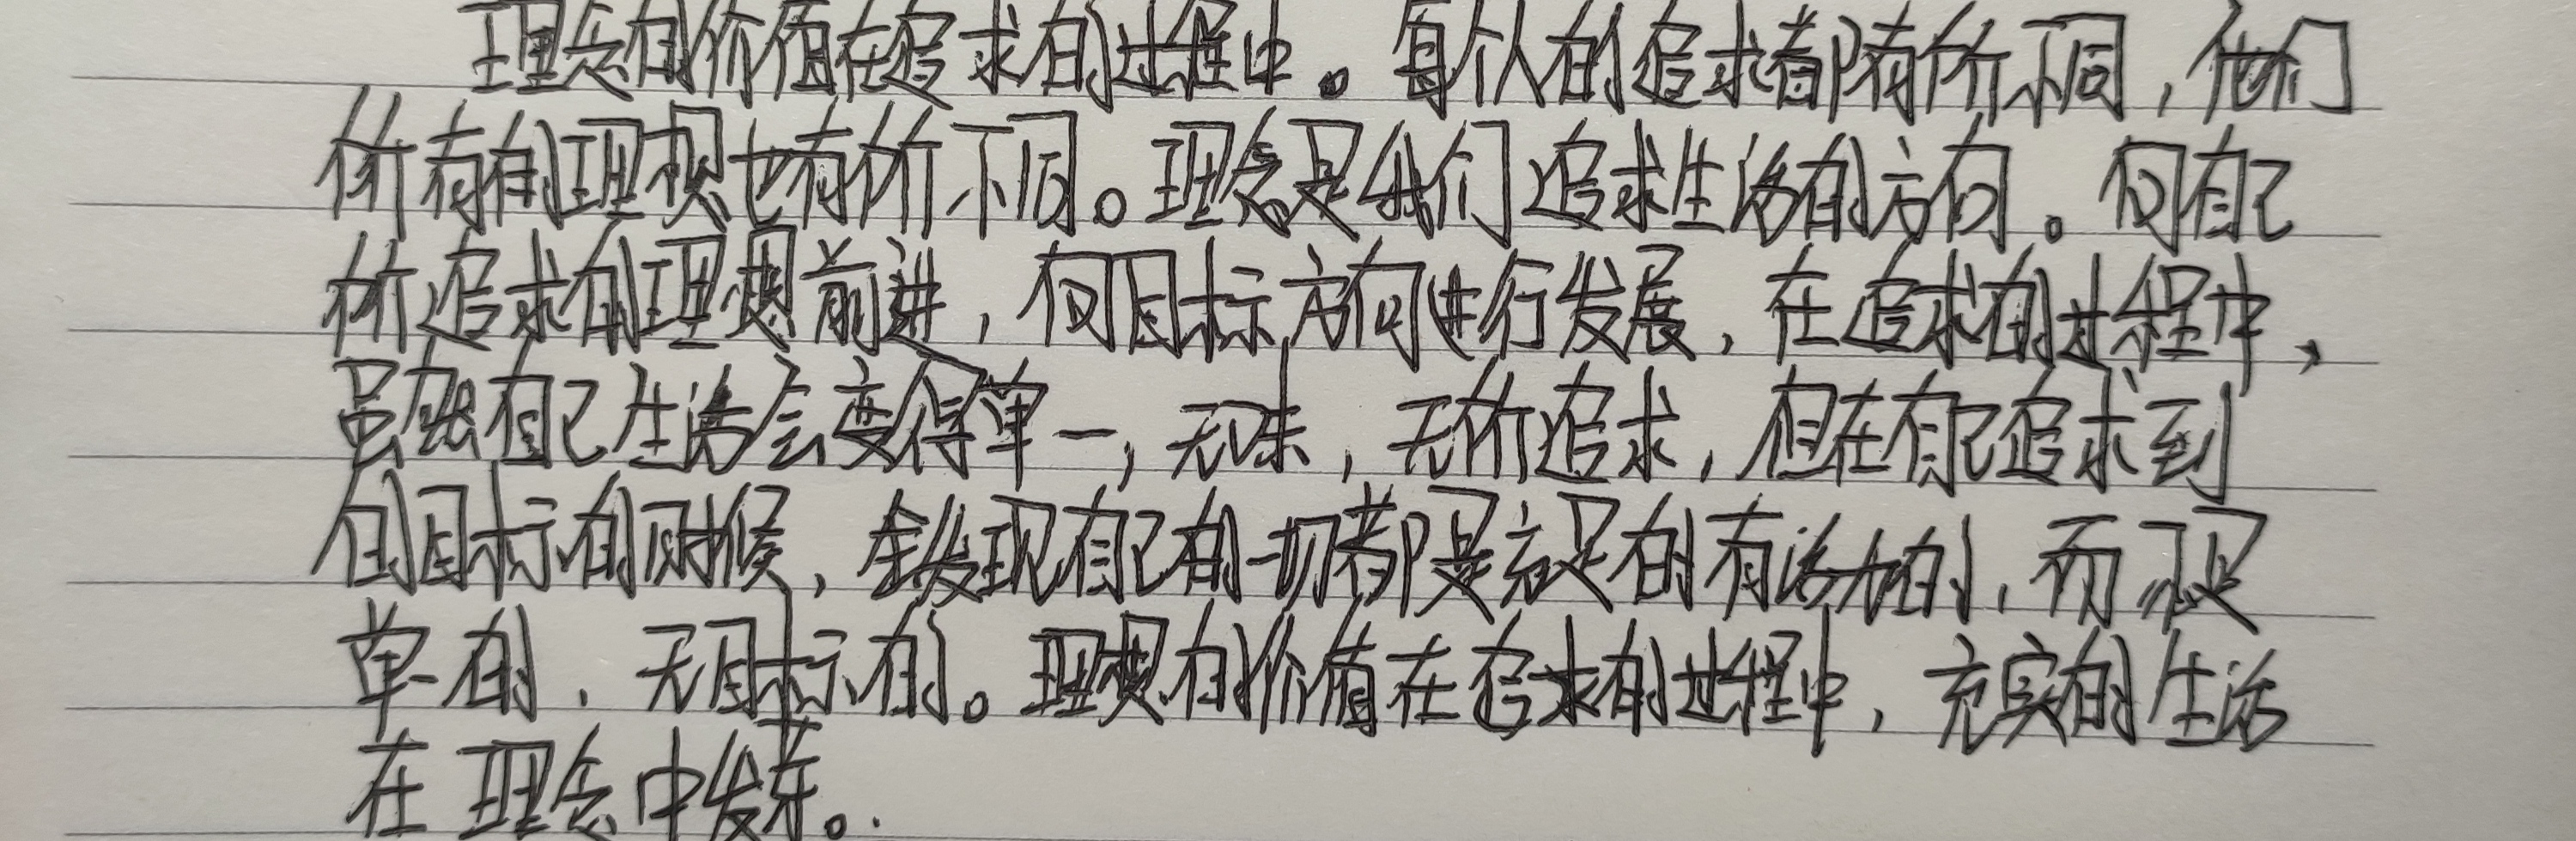 理念的价值在追求的过程中。每个人的追求都有所不同，他们
所有的理想也有所不同。理念是我们追求生活的方向。向自己
所追求的理想前进，向目标方向进行发展，在追求的过程中，
虽然自己生活会变得单一，无味，无所追求，但在自己追求到
的目标的时候，会发现自己的一切都是充足的有活力的，而不是
单一的，无目标的。理想的价值在追求的过程中，充实的生活
在理念中发芽。